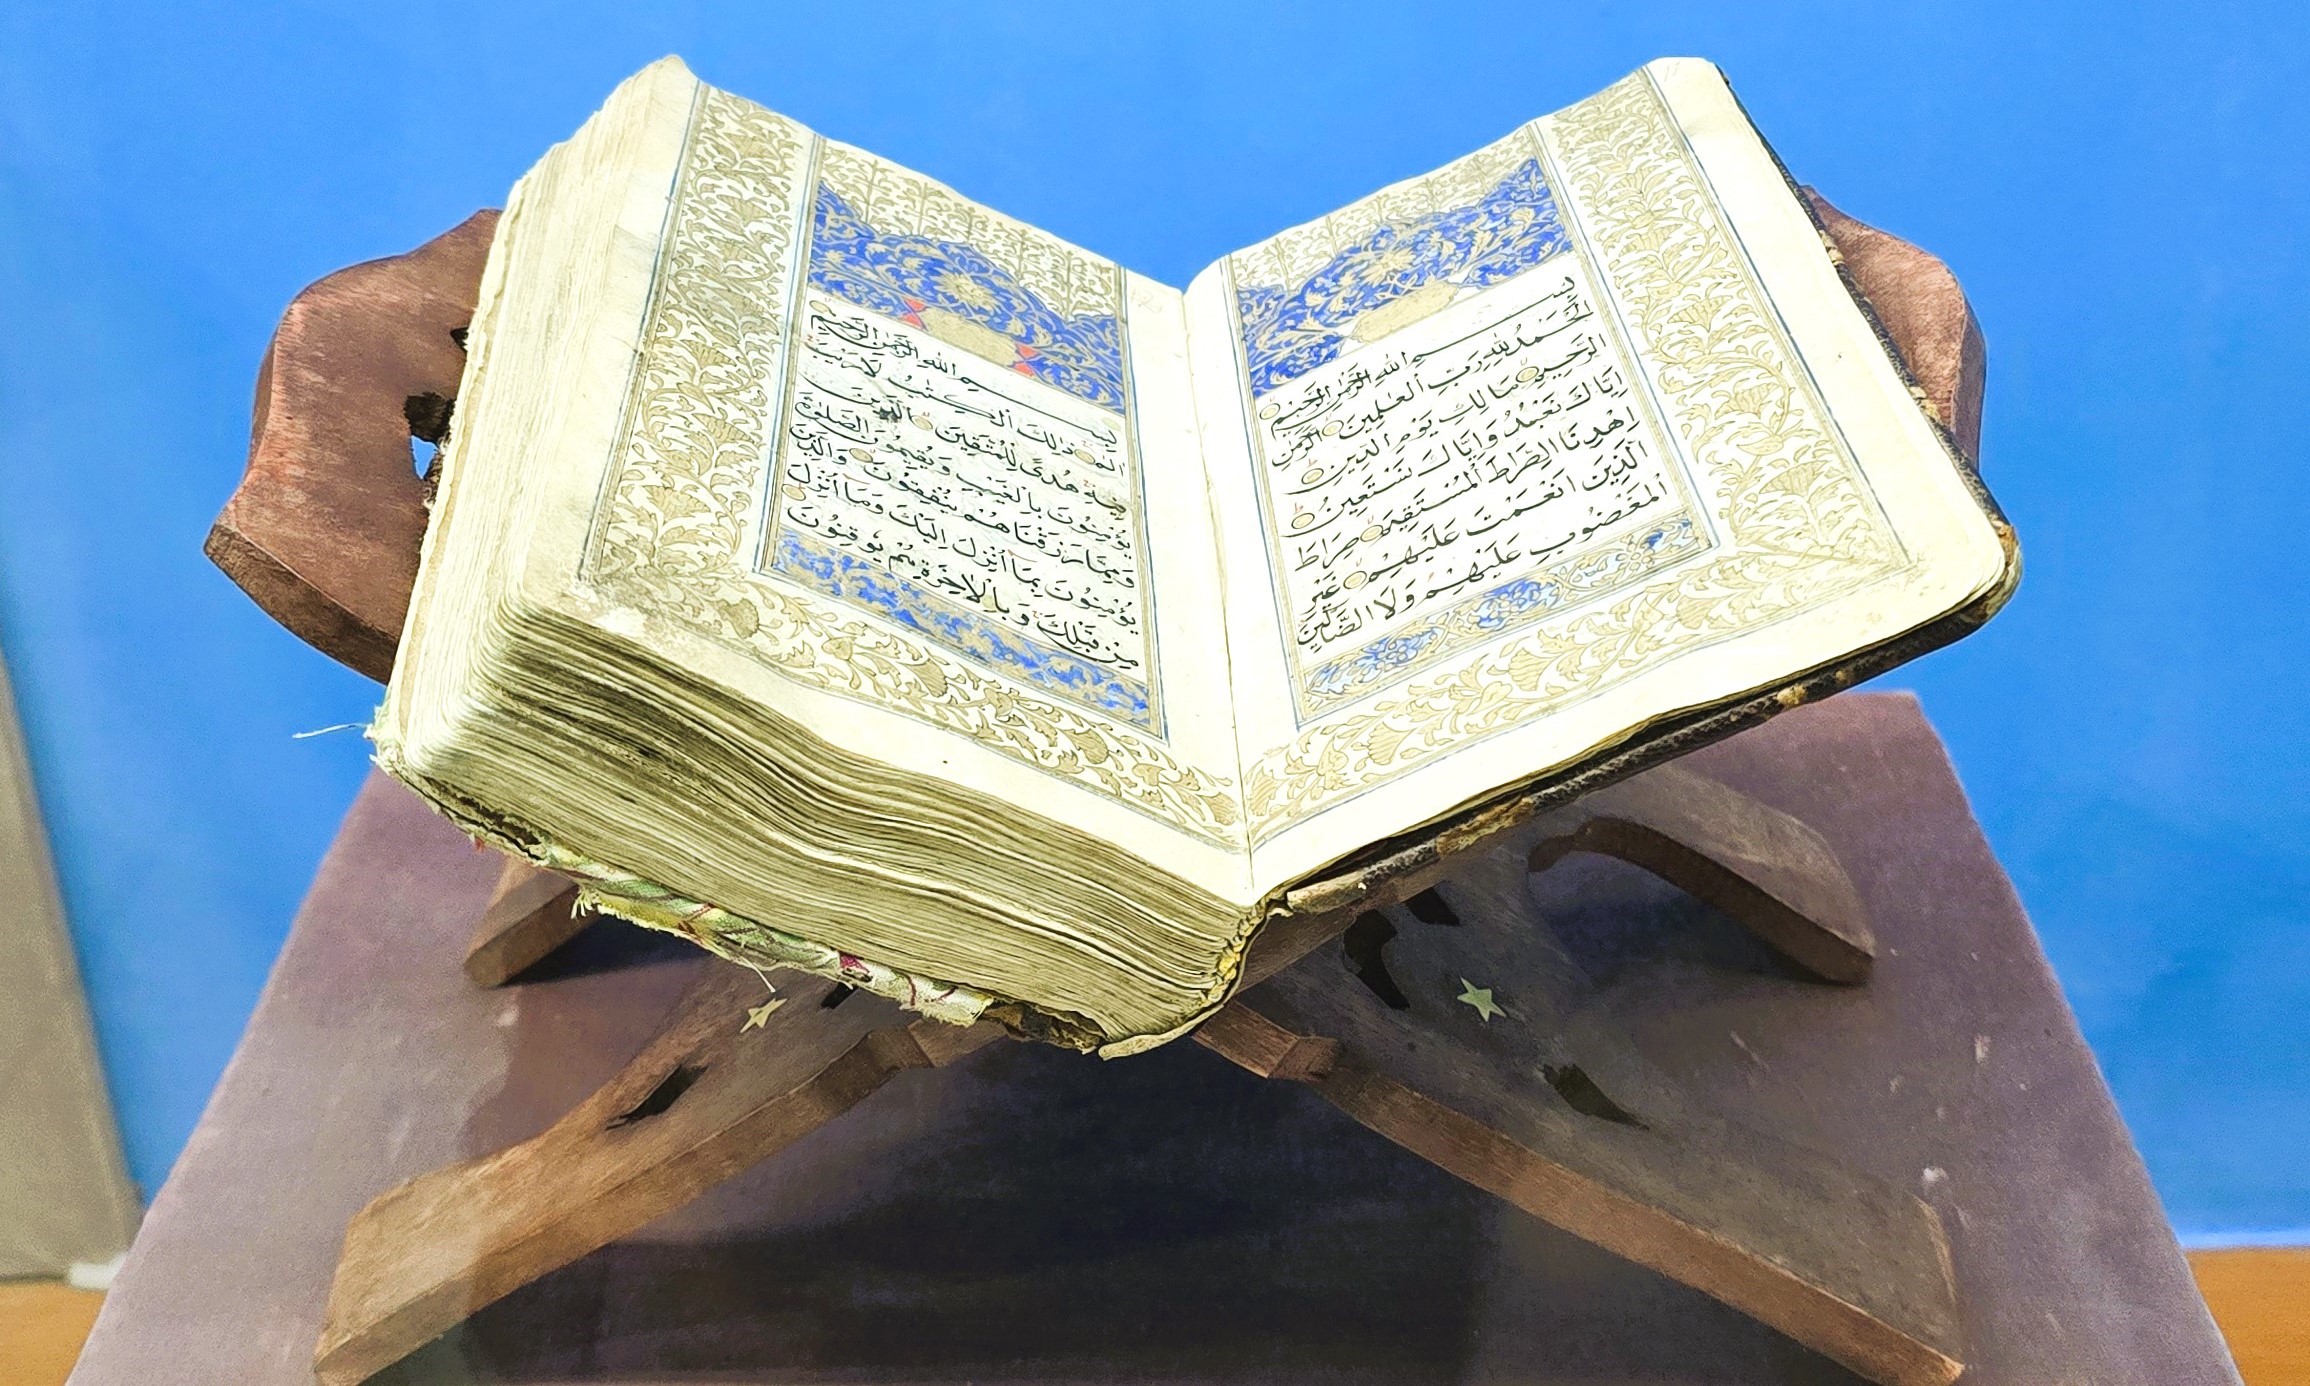 بسم الله الرحمن الرحيم
الحمد لله رب العلمين الرحمن
الرحيم مالك يوم الدين
اياك نعبد واياك نستعين
اهدنا الصراط المستقيم صراط
الذين انعمت عليهم غير
المغضوب عليهم ولا الضالين
بسم الله الرحمن الرحيم
الم ذلك الكتب لا ريب
فيه هدى للمتقين الذين
يؤمنون بالغيب ويقيمون الصلوة
ومما رزقناهم ينفقون والذين
يؤمنون بما انزل اليك وما انزل
من قبلك وبالاخرة هم يوقنون